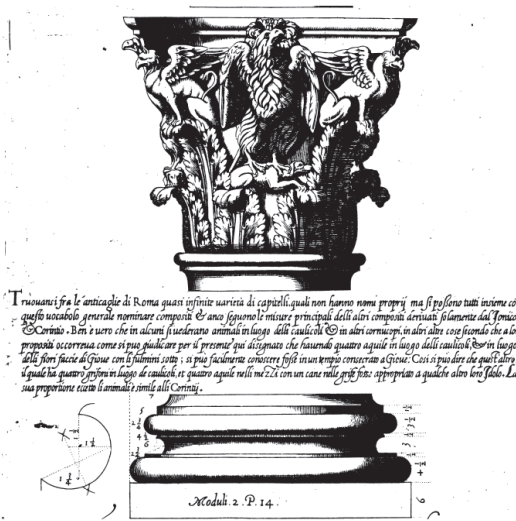 Truovansi fra le anticaglie di Roma quasi infinite varietà di capitelli, quali non hanno nomi proprij ma si possono tutti insieme cō
questo vocabolo generale nominare compositi & anco seguono le misure principali delli altri compositi derivati solamente dal Ionico
& Corinto. Ben'è vero che in alcuni si vederano animali in luogo delli caulicoli & in altri cornucopi, in altri altre cose secondo che a lor
propositi occorreva come si può giudicare per il presente qui disegnato che havendo quattro aquile in luogo delli caulicoli, & in luogo
delli fiori faccie di Giove con li fulmini sotto; si può facilmente conoscere fosse in un tempio consecrato a Giove. Cosi si può dire che quest'altro
il quale ha quattro grifoni in luogo de caulicoli, et quattro aquile nelli mezzi con un cane nelle griffe fosse appropriato a qualche altro loro Idolo. La
sua proportione eceto li animali è simile alli Corintij.
Moduli. 2. P. 14.